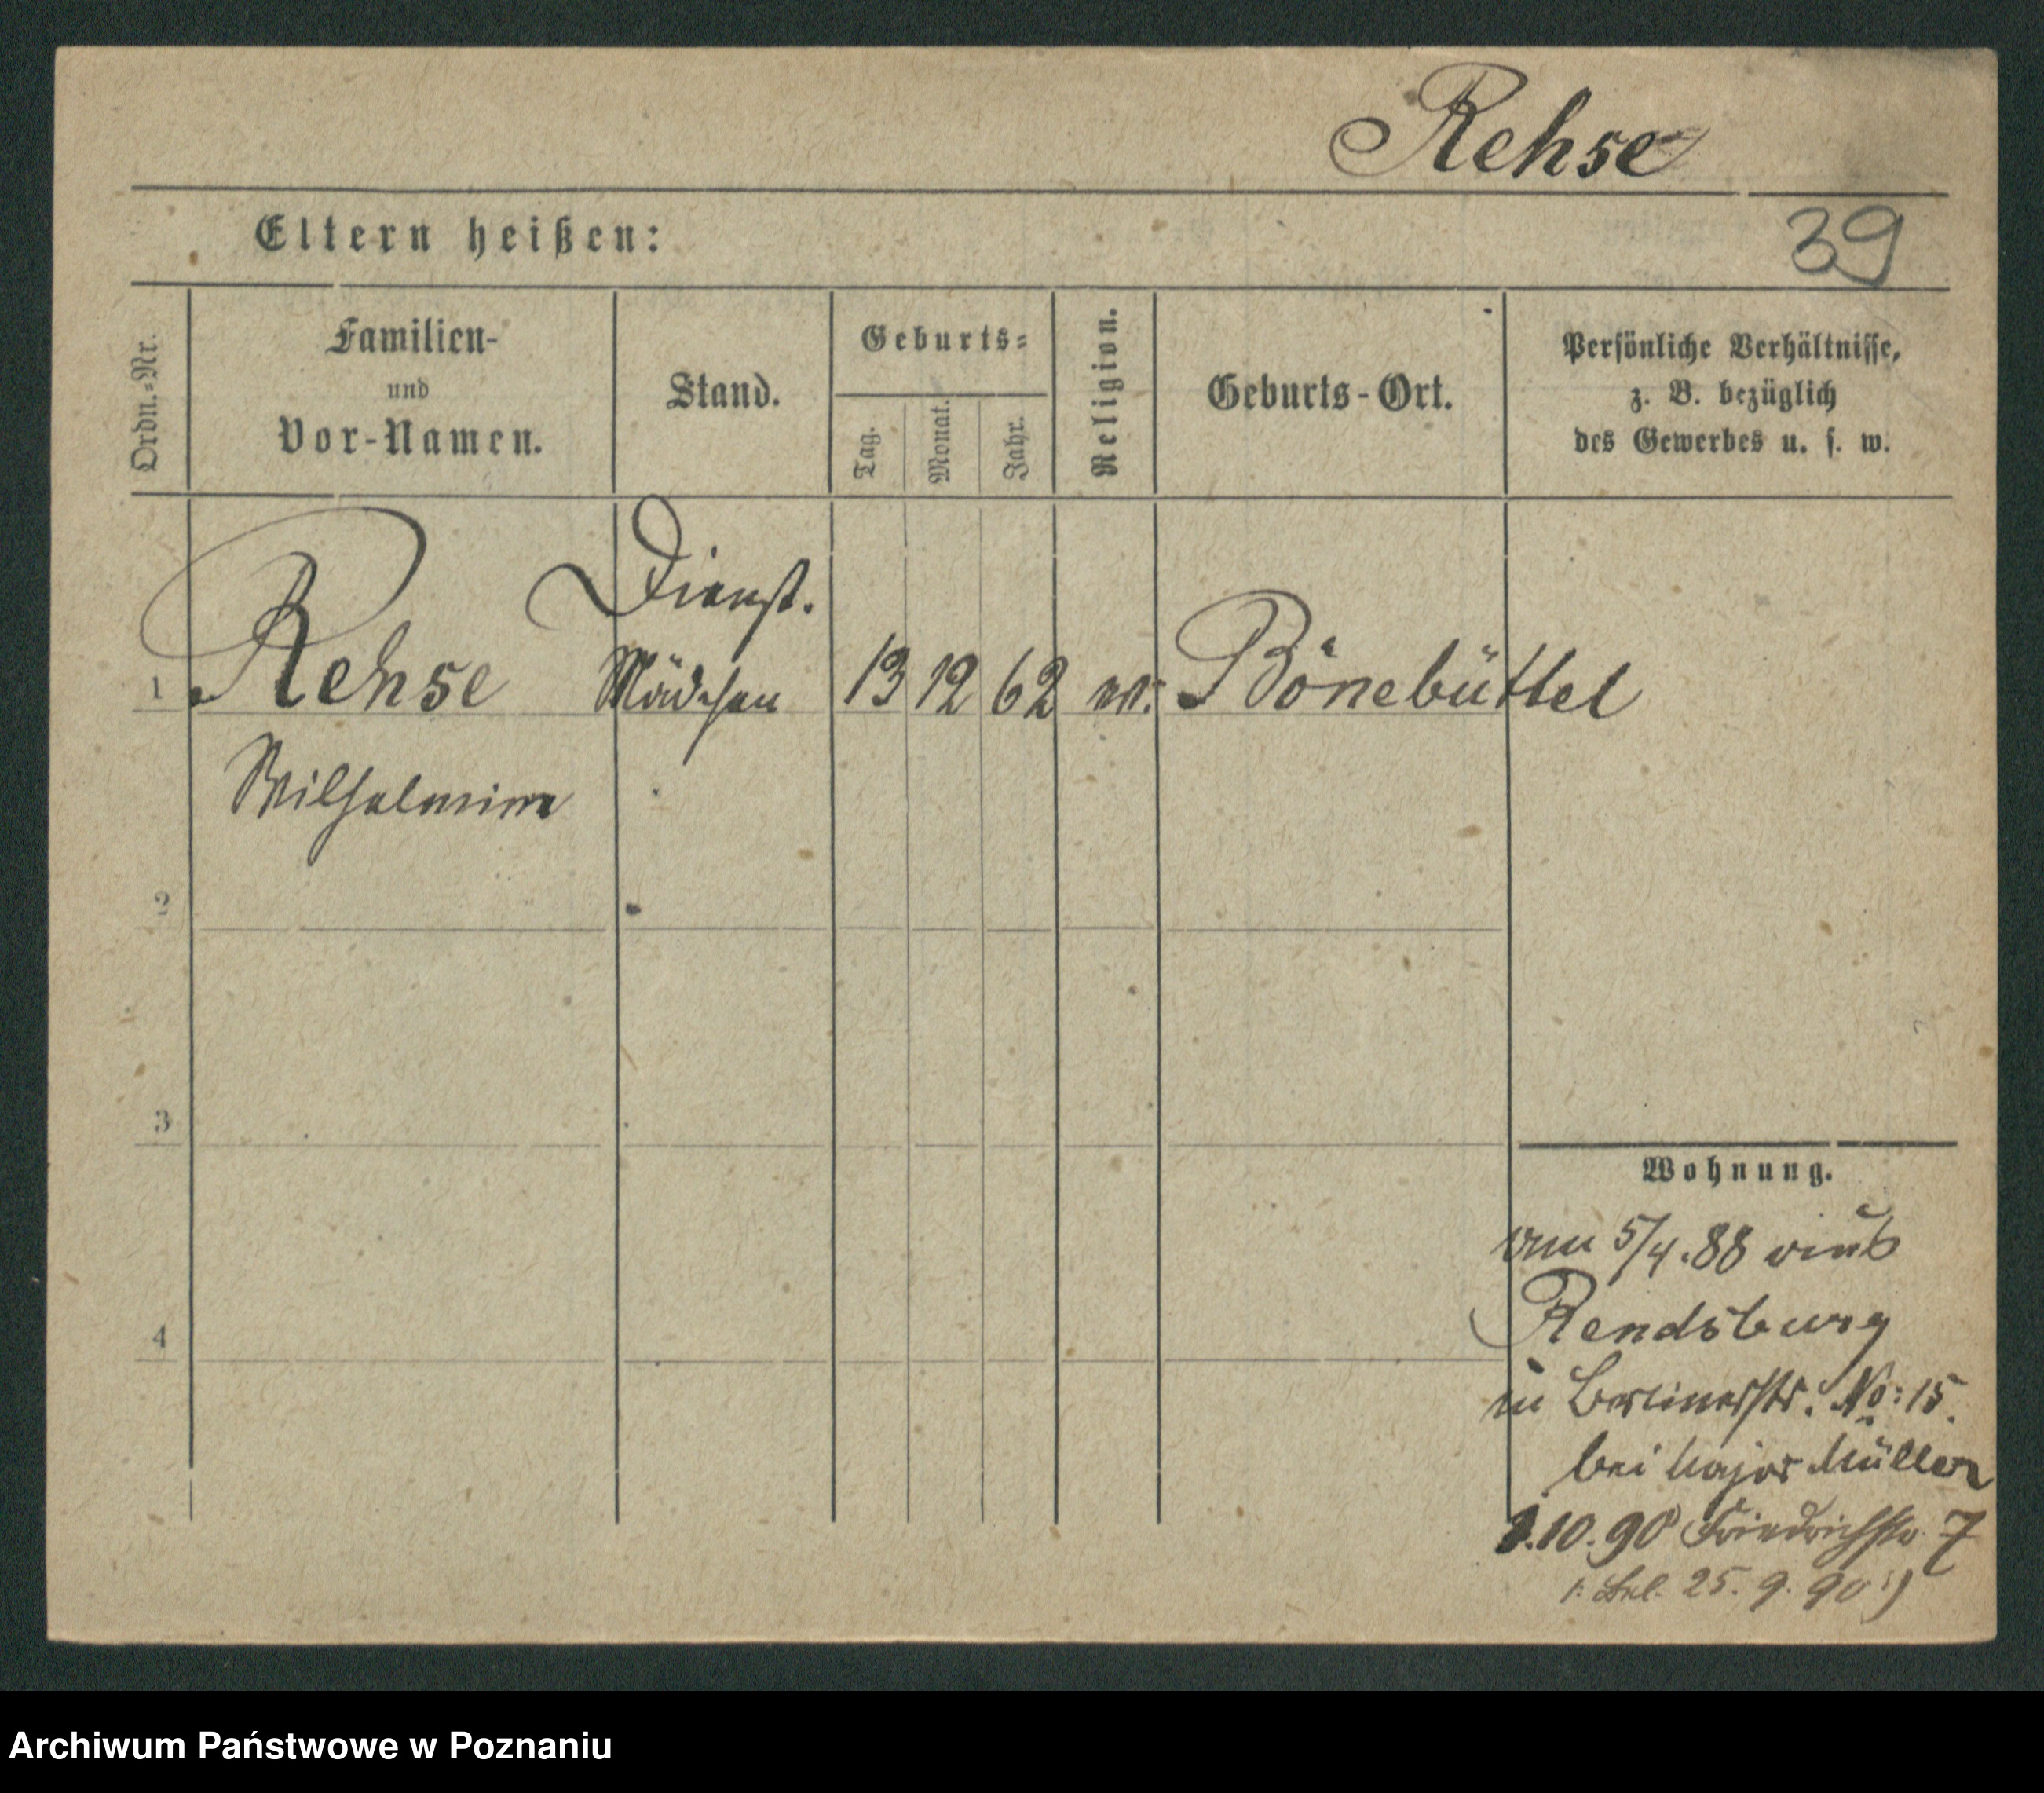 Rehse
Eltern heißen:
39
Ordn.=Nr.
Familien-
und
Vor-Namen.
Stand.
Geburts=
Tag.
Monat.
Jahr.
Religion.
Geburts-Ort.
Persönliche Verhältnisse,
z. B. bezüglich
des Gewerbes u. s. w.
Dienst.
1 Rehse Mädchen 13 12 62 Bönebüttel
Wilhelmine
2
3
4
Wohnung.
5/4.88 aus
Rendsburg
in Berlinerstr. No: 15.
bei Major Müller
1.10.90 Friedrichstr. 7
25. 9. 90
Archiwum Państwowe w Poznaniu